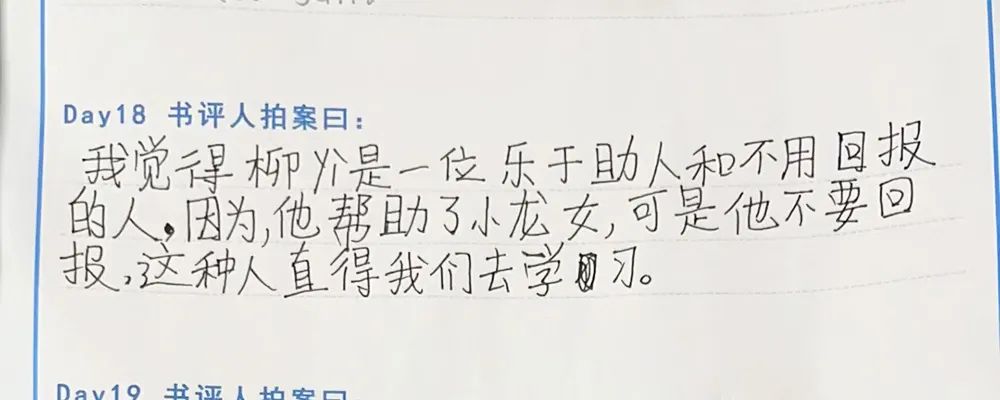 Day18 书评人拍案曰：
我觉得柳丫是一位乐于助人和不用回报
的人。因为,他帮助了小龙女,可是他不要回
报,这种人直得我们去学习。
Day19 书评人拍案曰：